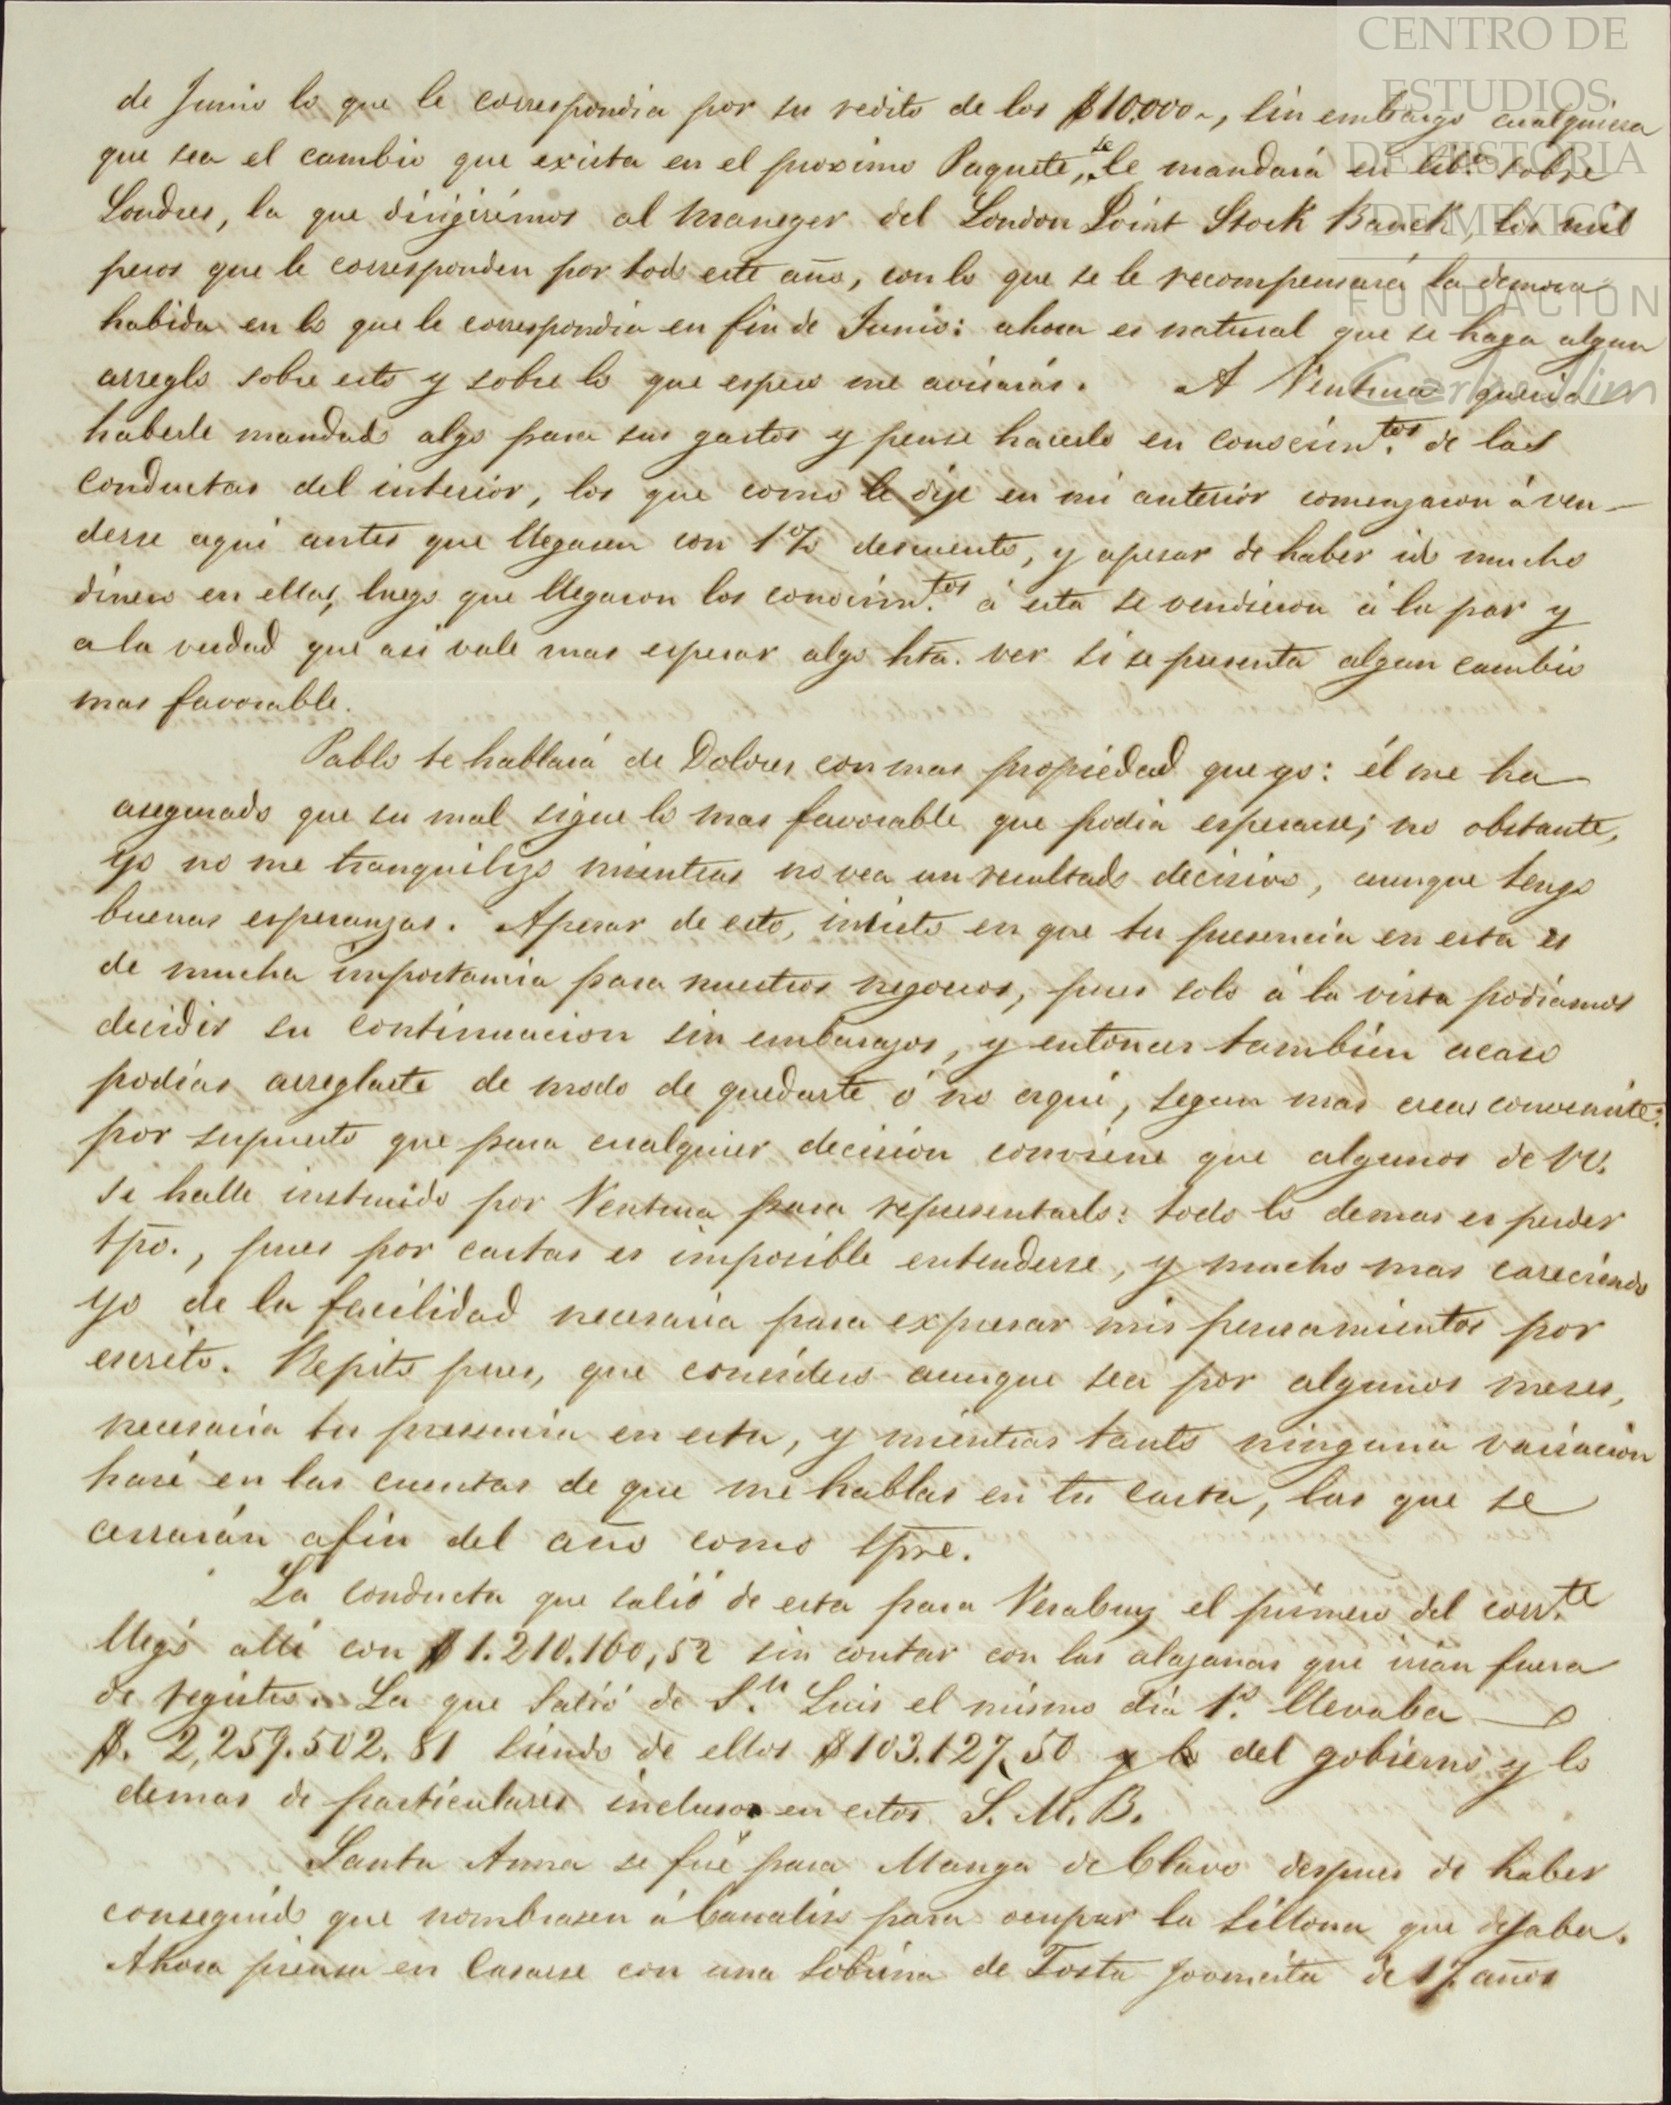 CENTRO DE
ESTUDIOS
DE HISTORIA
DE MEXICO
FUNDACION
Carlos Slim
de Junio lo que le correspondia por su redito de los $10.000~, sin embargo cualquiera
que sea el cambio que exista en el proximo Paquete, se le mandará en lib.ª sobre
Londres, la que dirigirémos al Maneger del London Joint Stock Banck, los mil
pesos que le corresponden por todo este año, con lo que se le recompensará la demora
habida en lo que le correspondia en fin de Junio: ahora es natural que se haga algun
arreglo sobre esto y sobre lo que espero me avisarás. A Ventura queria
haberle mandado algo para sus gastos y pense hacerlo en conocim.tos de las
conductas del interior, los que como le dije en mi anterior comenzaron á ven-
derse aqui antes que llegasen con 1% descuento, y apesar de haber ido mucho
dinero en ellas, luego que llegaron los conocim.tos á esta se vendieron á la par y
a la verdad que asi vale mas esperar algo hta. ver si se presenta algun cambio
mas favorable.
Pablo te hablará de Dolores con mas propiedad que yo: él me ha
asegurado que su mal sigue lo mas favorable que podia esperarse; no obstante,
yo no me tranquilizo mientras no vea un resultado decisivo, aunque tengo
buenas esperanzas. Apesar de esto, insisto en que tu presencia en esta es
de mucha importancia para nuestros negocios, pues solo á la vista podriamos
decidir su continuacion sin embarazos, y entonces tambien acaso
podias arreglarte de modo de quedarte ó no aqui, segun mas creas conveniente:
por supuesto que para cualquier decision conviene que algunos de VV.
se halle instruido por Ventura para representarlo: todo lo demas es perder
tpo., pues por cartas es imposible entenderse, y mucho mas careciendo
yo de la facilidad necesaria para expresar mis pensamientos por
escrito. Repito pues, que considero aunque sea por algunos meses,
necesaria tu presencia en esta, y mientras tanto ninguna variacion
haré en las cuentas de que me hablas en tu carta, las que se
cerrarán a fin del año como spre.
La conducta que salió de esta para Verabruz el primero del corr.te
llegó allí con $1.210.160,52 sin contar con las alazanas que irián fuera
de registro. La que salió de S.n Luis el mismo dia 1.º llevaba
$. 2,259.502.81 siendo de ellos $103.127,50 del gobierno y lo
demas de particulares inclusos en estos S. M. B.
Santa Anna se fué para Manga de Clavo despues de haber
conseguido que nombrasen á Canalizo para ocupar la sillona que dejaba.
Ahora piensa en casarse con una sobrina de Tosta jovencita de 17 años